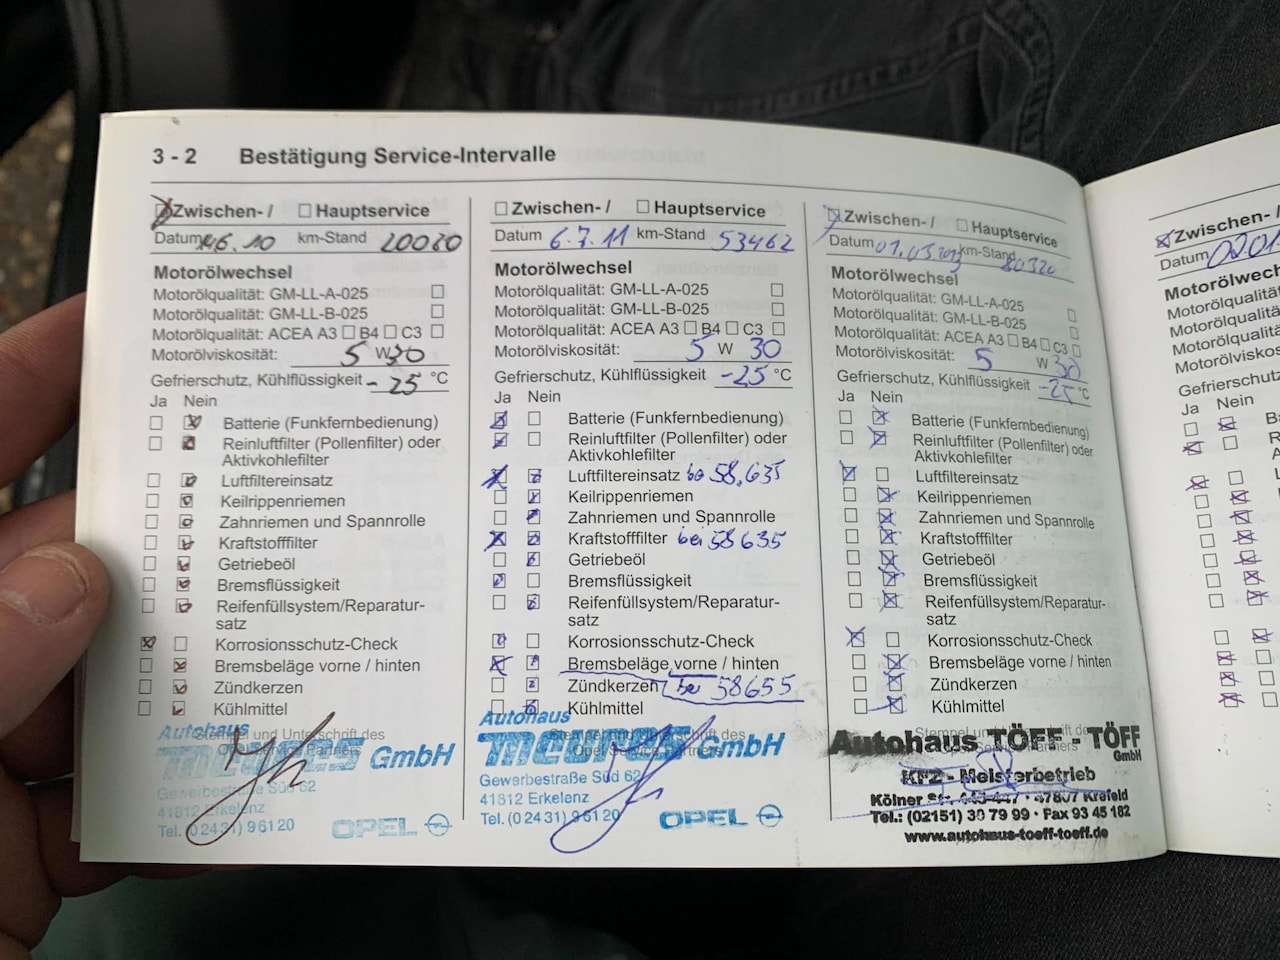 3 - 2 Bestätigung Service-Intervalle
Zwischen- / Hauptservice
Datum 6.10 km-Stand 20020
Motorölwechsel
Motorölqualität: GM-LL-A-025
Motorölqualität: GM-LL-B-025
Motorölqualität: ACEA A3 B4 C3
Motorölviskosität: 5 W 30
Gefrierschutz, Kühlflüssigkeit -25 °C
Ja Nein
Batterie (Funkfernbedienung)
Reinluftfilter (Pollenfilter) oder
Aktivkohlefilter
Luftfiltereinsatz
Keilrippenriemen
Zahnriemen und Spannrolle
Kraftstofffilter
Getriebeöl
Bremsflüssigkeit
Reifenfüllsystem/Reparatur-
satz
Korrosionsschutz-Check
Bremsbeläge vorne / hinten
Zündkerzen
Kühlmittel
Stempel und Unterschrift des
Opel Service Partners
Autohaus
GmbH
Gewerbestraße Süd 62
41812 Erkelenz
Tel. (0 24 31) 9 61 20
OPEL
Zwischen- / Hauptservice
Datum 6.7.11 km-Stand 53462
Motorölwechsel
Motorölqualität: GM-LL-A-025
Motorölqualität: GM-LL-B-025
Motorölqualität: ACEA A3 B4 C3
Motorölviskosität: 5 W 30
Gefrierschutz, Kühlflüssigkeit -25 °C
Ja Nein
Batterie (Funkfernbedienung)
Reinluftfilter (Pollenfilter) oder
Aktivkohlefilter
Luftfiltereinsatz bei 58.635
Keilrippenriemen
Zahnriemen und Spannrolle
Kraftstofffilter bei 58635
Getriebeöl
Bremsflüssigkeit
Reifenfüllsystem/Reparatur-
satz
Korrosionsschutz-Check
Bremsbeläge vorne / hinten
Zündkerzen bei 58655
Kühlmittel
Stempel und Unterschrift des
Opel Service Partners
Autohaus
GmbH
Gewerbestraße Süd 62
41812 Erkelenz
Tel. (0 24 31) 9 61 20
OPEL
Zwischen- / Hauptservice
Datum 01.03.2013 km-Stand 80320
Motorölwechsel
Motorölqualität: GM-LL-A-025
Motorölqualität: GM-LL-B-025
Motorölqualität: ACEA A3 B4 C3
Motorölviskosität: 5 W 30
Gefrierschutz, Kühlflüssigkeit -25 °C
Ja Nein
Batterie (Funkfernbedienung)
Reinluftfilter (Pollenfilter) oder
Aktivkohlefilter
Luftfiltereinsatz
Keilrippenriemen
Zahnriemen und Spannrolle
Kraftstofffilter
Getriebeöl
Bremsflüssigkeit
Reifenfüllsystem/Reparatur-
satz
Korrosionsschutz-Check
Bremsbeläge vorne / hinten
Zündkerzen
Kühlmittel
Stempel und Unterschrift des
Autohaus TÖFF - TÖFF
GmbH
KFZ - Meisterbetrieb
Kölner Str. 445-447 • 47807 Krefeld
Tel.: (02151) 30 79 99 • Fax 93 45 182
www.autohaus-toeff-toeff.de
Zwischen- /
Datum
Motorölwech
Motorölqualität
Motorölqualität
Motorölqualität
Motorölviskos
Gefrierschutz
Ja Nein